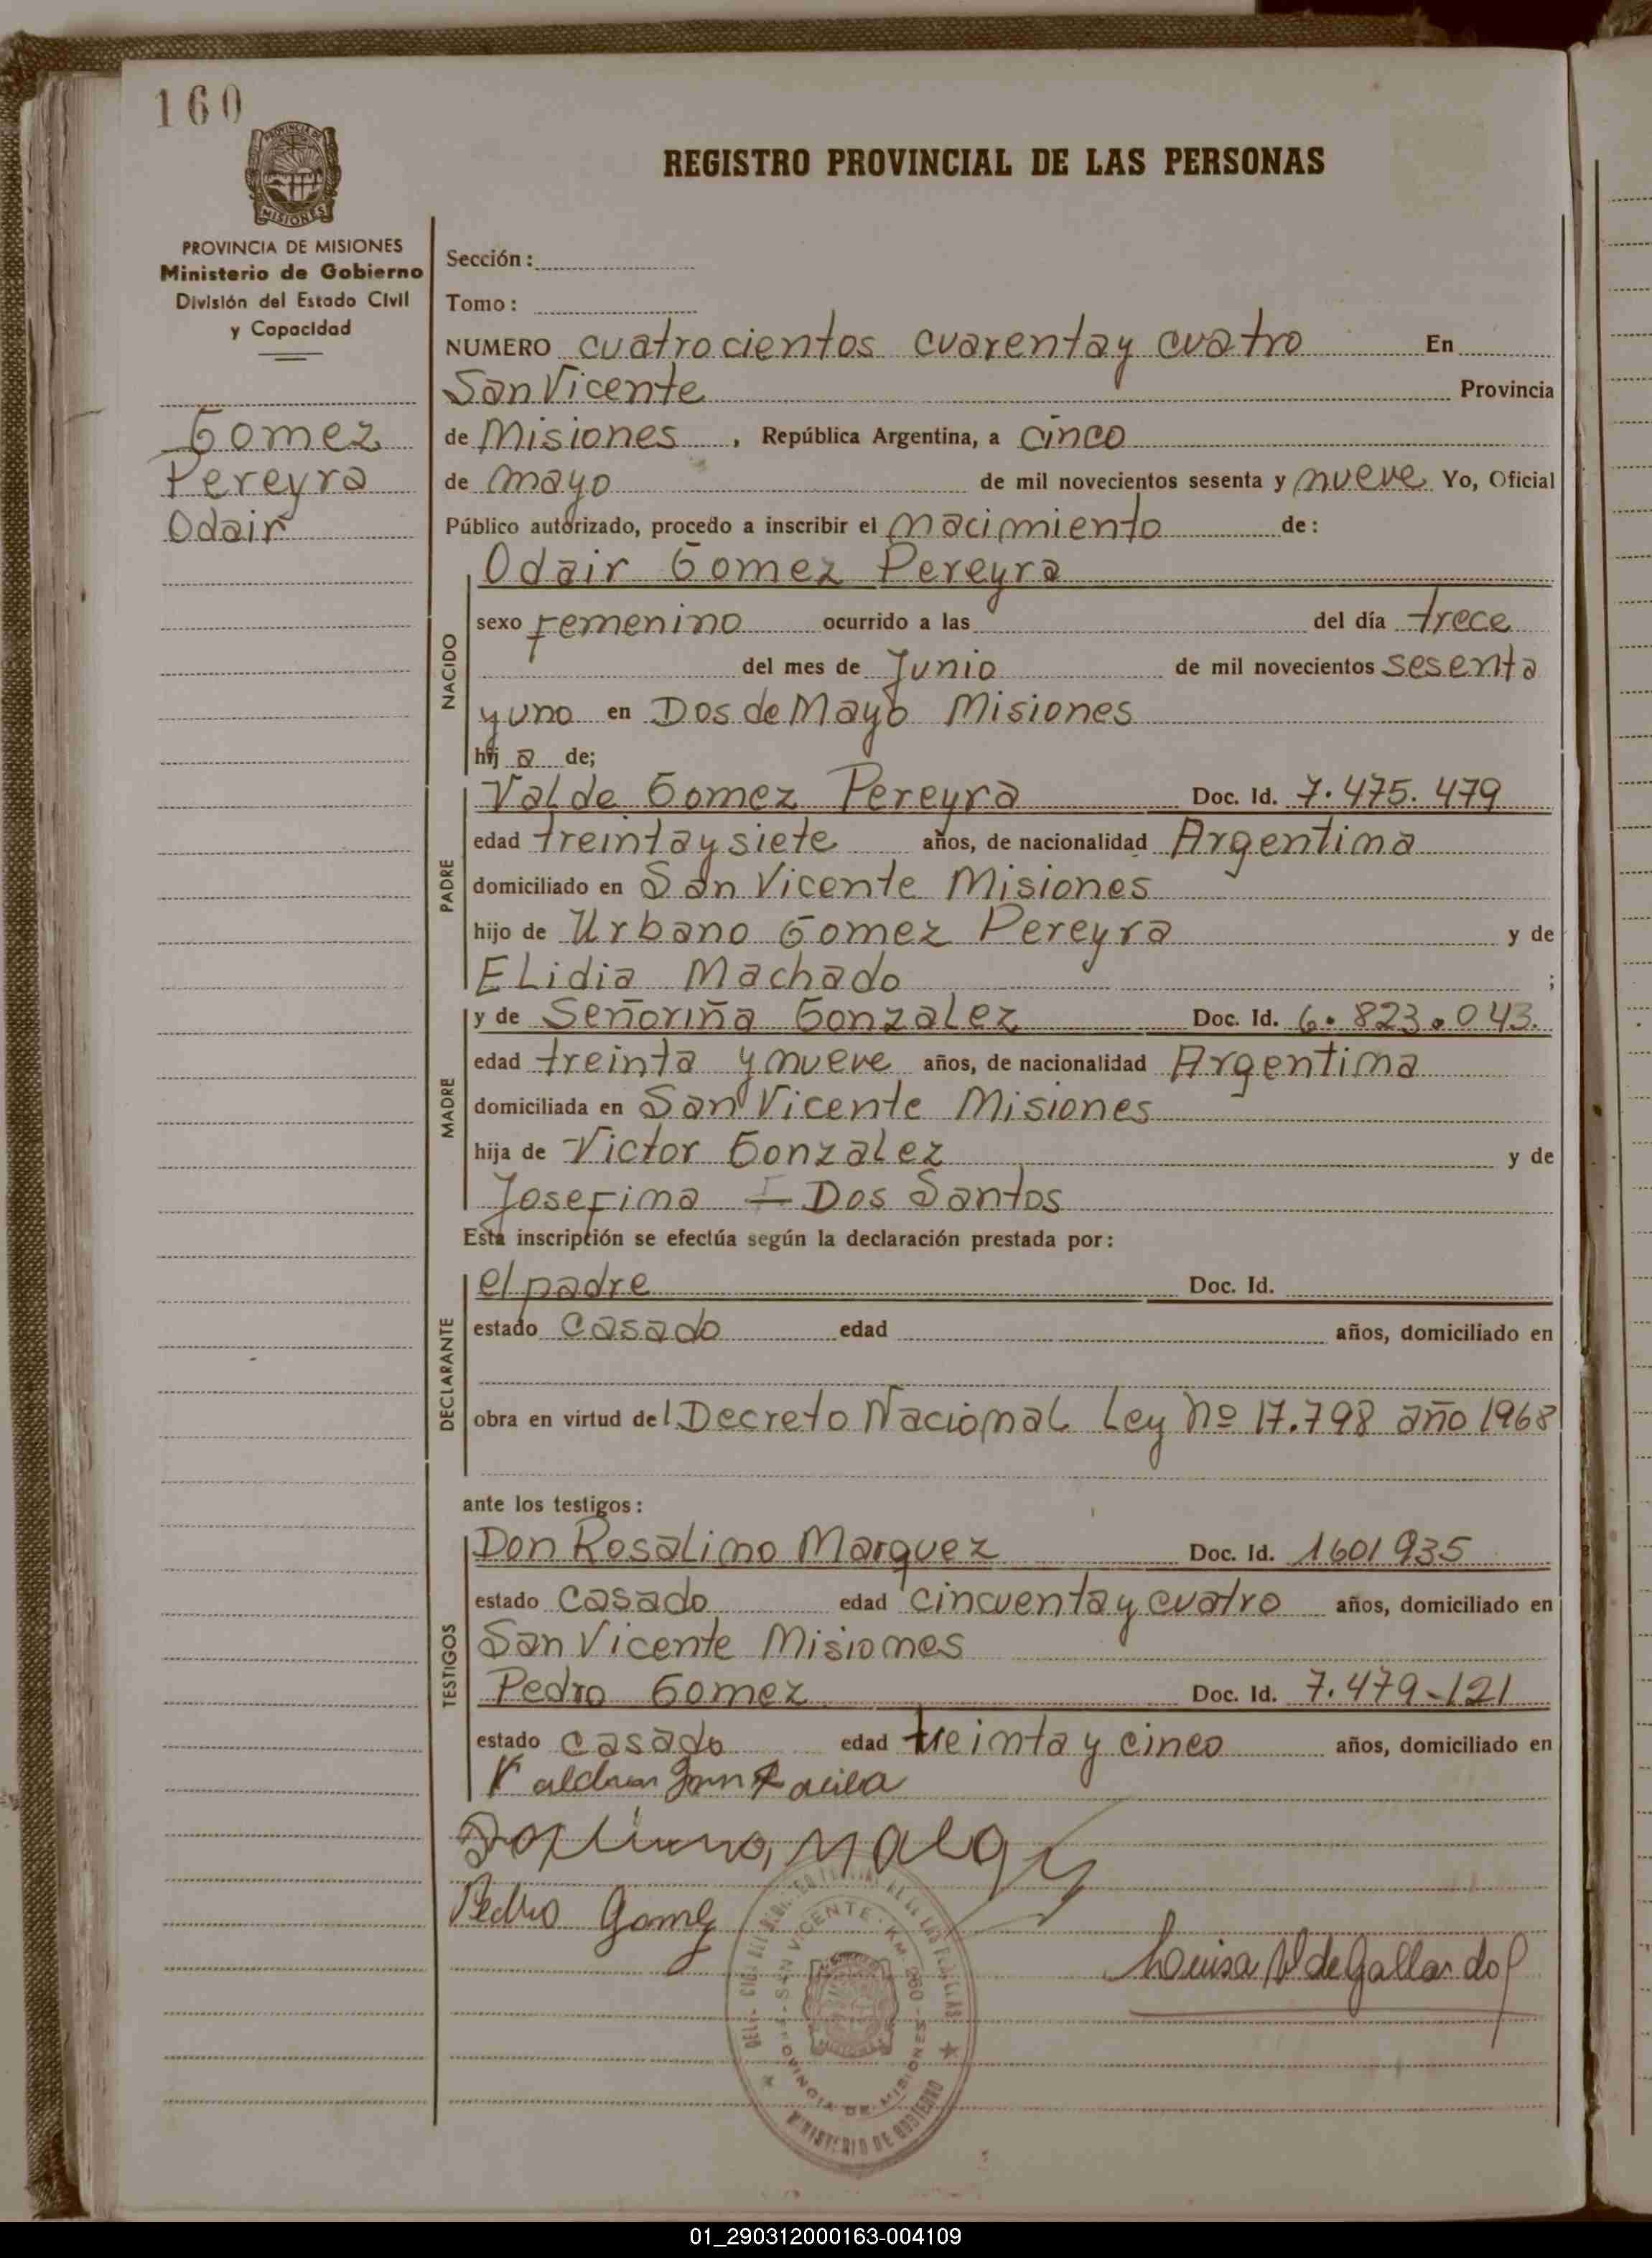 160
PROVINCIA DE
MISIONES
PROVINCIA DE MISIONES
Ministerio de Gobierno
División del Estado Civil
y Capacidad
Gomez
Pereyra
Odair
REGISTRO PROVINCIAL DE LAS PERSONAS
Sección:
Tomo:
NUMERO cuatrocientos cuarenta y cuatro En
San Vicente Provincia
de Misiones, República Argentina, a cinco
de mayo de mil novecientos sesenta y nueve Yo, Oficial
Público autorizado, procedo a inscribir el nacimiento de:
NACIDO
Odair Gomez Pereyra
sexo femenino ocurrido a las del día trece
del mes de Junio de mil novecientos sesenta
y uno en Dos de Mayo Misiones
hij a de;
PADRE
Valde Gomez Pereyra Doc. Id. 7.475.479
edad treinta y siete años, de nacionalidad Argentina
domiciliado en San Vicente Misiones
hijo de Urbano Gomez Pereyra y de
ELidia Machado ;
MADRE
y de Señoriña Gonzalez Doc. Id. 6.823.043.
edad treinta y nueve años, de nacionalidad Argentina
domiciliada en San Vicente Misiones
hija de Victor Gonzalez y de
Josefina - Dos Santos
Esta inscripción se efectúa según la declaración prestada por:
DECLARANTE
el padre Doc. Id.
estado Casado edad años, domiciliado en
obra en virtud del Decreto Nacional Ley Nº 17.798 año 1968
ante los testigos:
TESTIGOS
Don Rosalino Marquez Doc. Id. 1601935
estado Casado edad cincuenta y cuatro años, domiciliado en
San Vicente Misiones
Pedro Gomez Doc. Id. 7.479-121
estado casado edad treinta y cinco años, domiciliado en
Pedro Gomez
Louisa V de Gallardo
SAN VICENTE - KM 260 - MISIONES
PROVINCIA DE MISIONES
MINISTERIO DE GOBIERNO
01_290312000163-004109